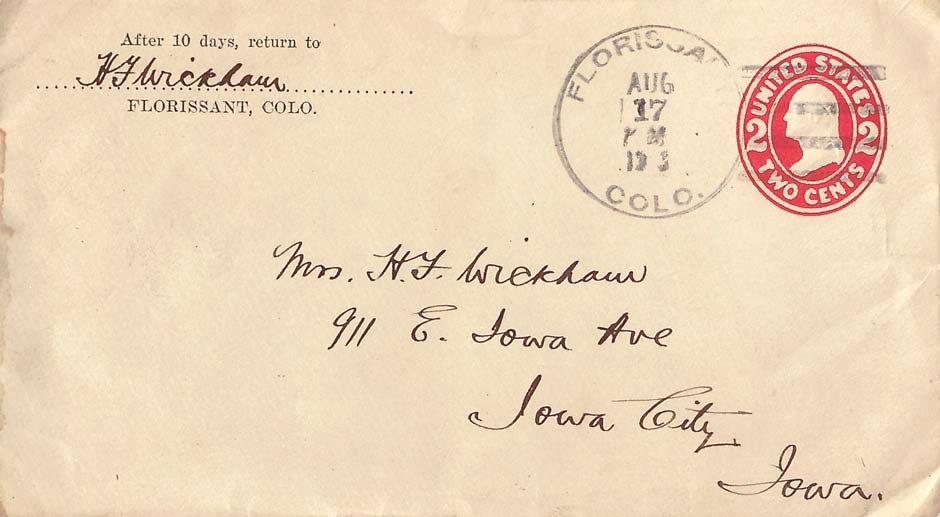 After 10 days, return to
H F Wickham
FLORISSANT, COLO.
AUG
17
COLO.
UNITED STATES
2 2
TWO CENTS
Mrs. H. F. Wickham
911 E. Iowa Ave
Iowa City,
Iowa.